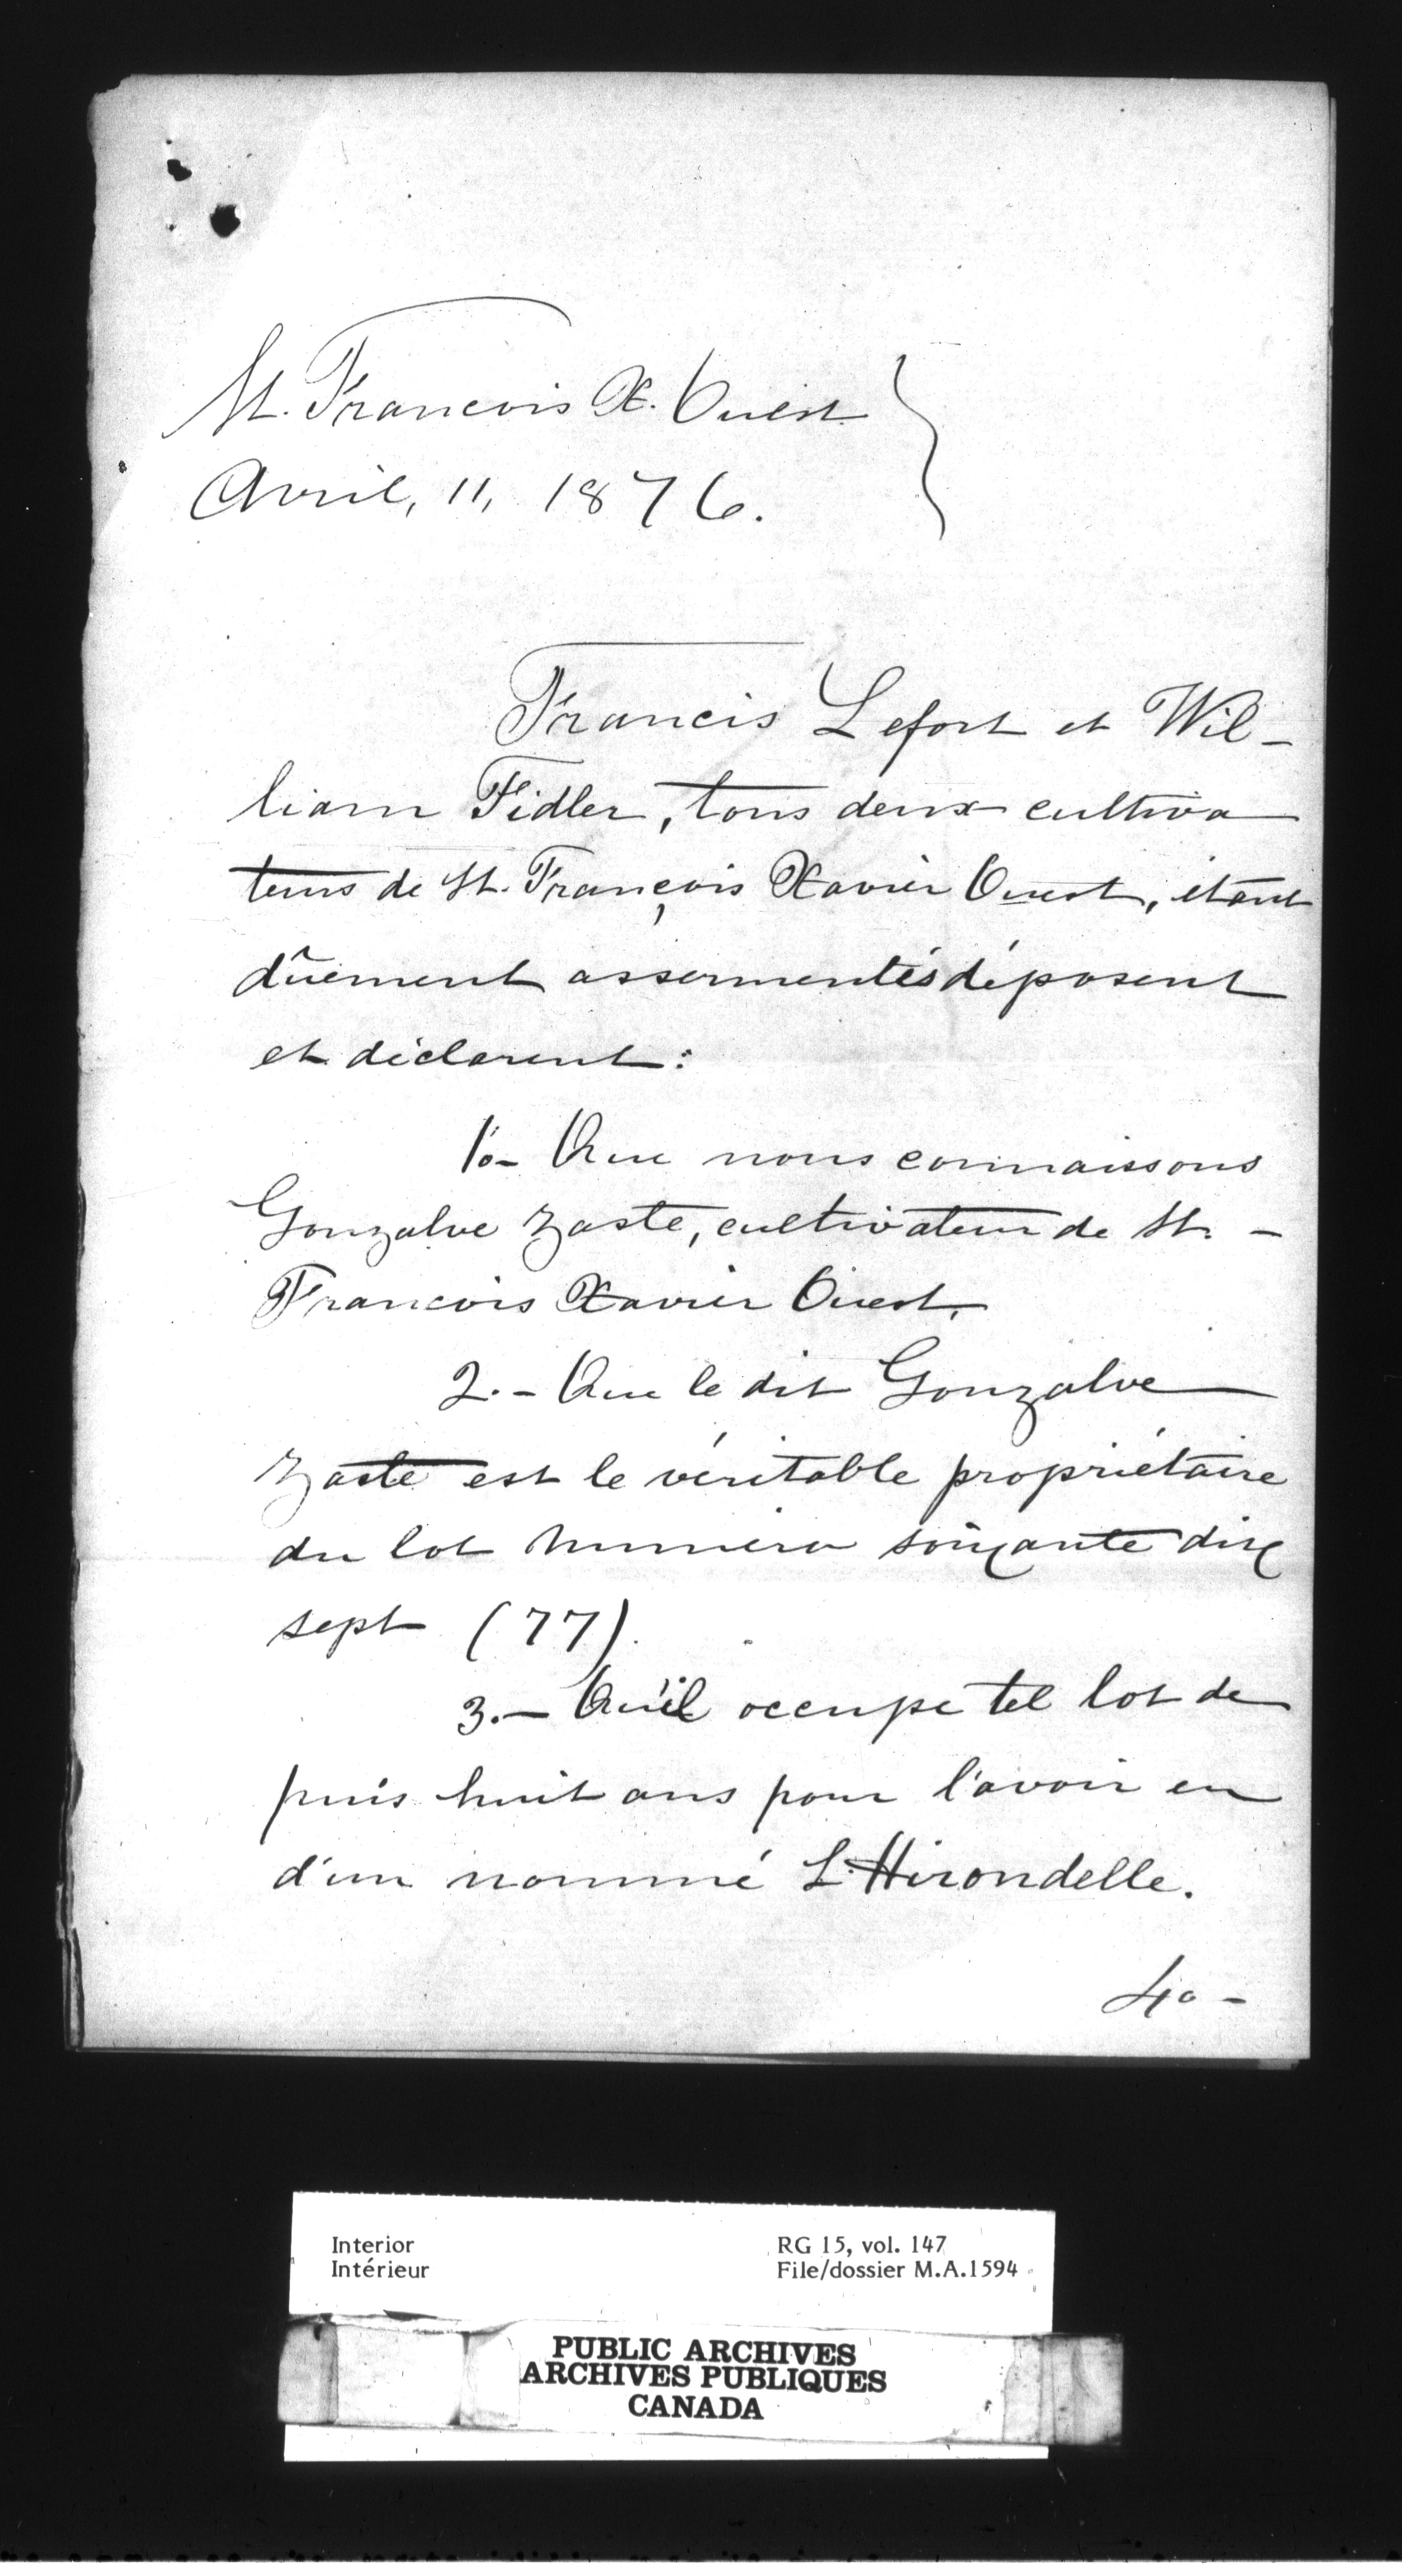 St. Francois X. Ouest
Avril, 11, 1876.
Francis Lefort et Wil-
liam Fidler, tous deux cultiva
teurs de St. François Xavier Ouest, étant
dûement assermentés déposent
et déclarent:
1o- Que nous connaissons
Gonzalve Zaste, cultivateur de St. -
Francois Xavier Ouest.
2.- Que le dit Gonzalve
Zaste est le véritable propriétaire
du lot numero soixante dix
sept (77).
3.- Qu'il occupe tel lot de
puis huit ans pour l'avoir eu
d'un nommé L'Hirondelle.
4o-
Interior
Intérieur
RG 15, vol. 147
File/dossier M.A.1594
PUBLIC ARCHIVES
ARCHIVES PUBLIQUES
CANADA